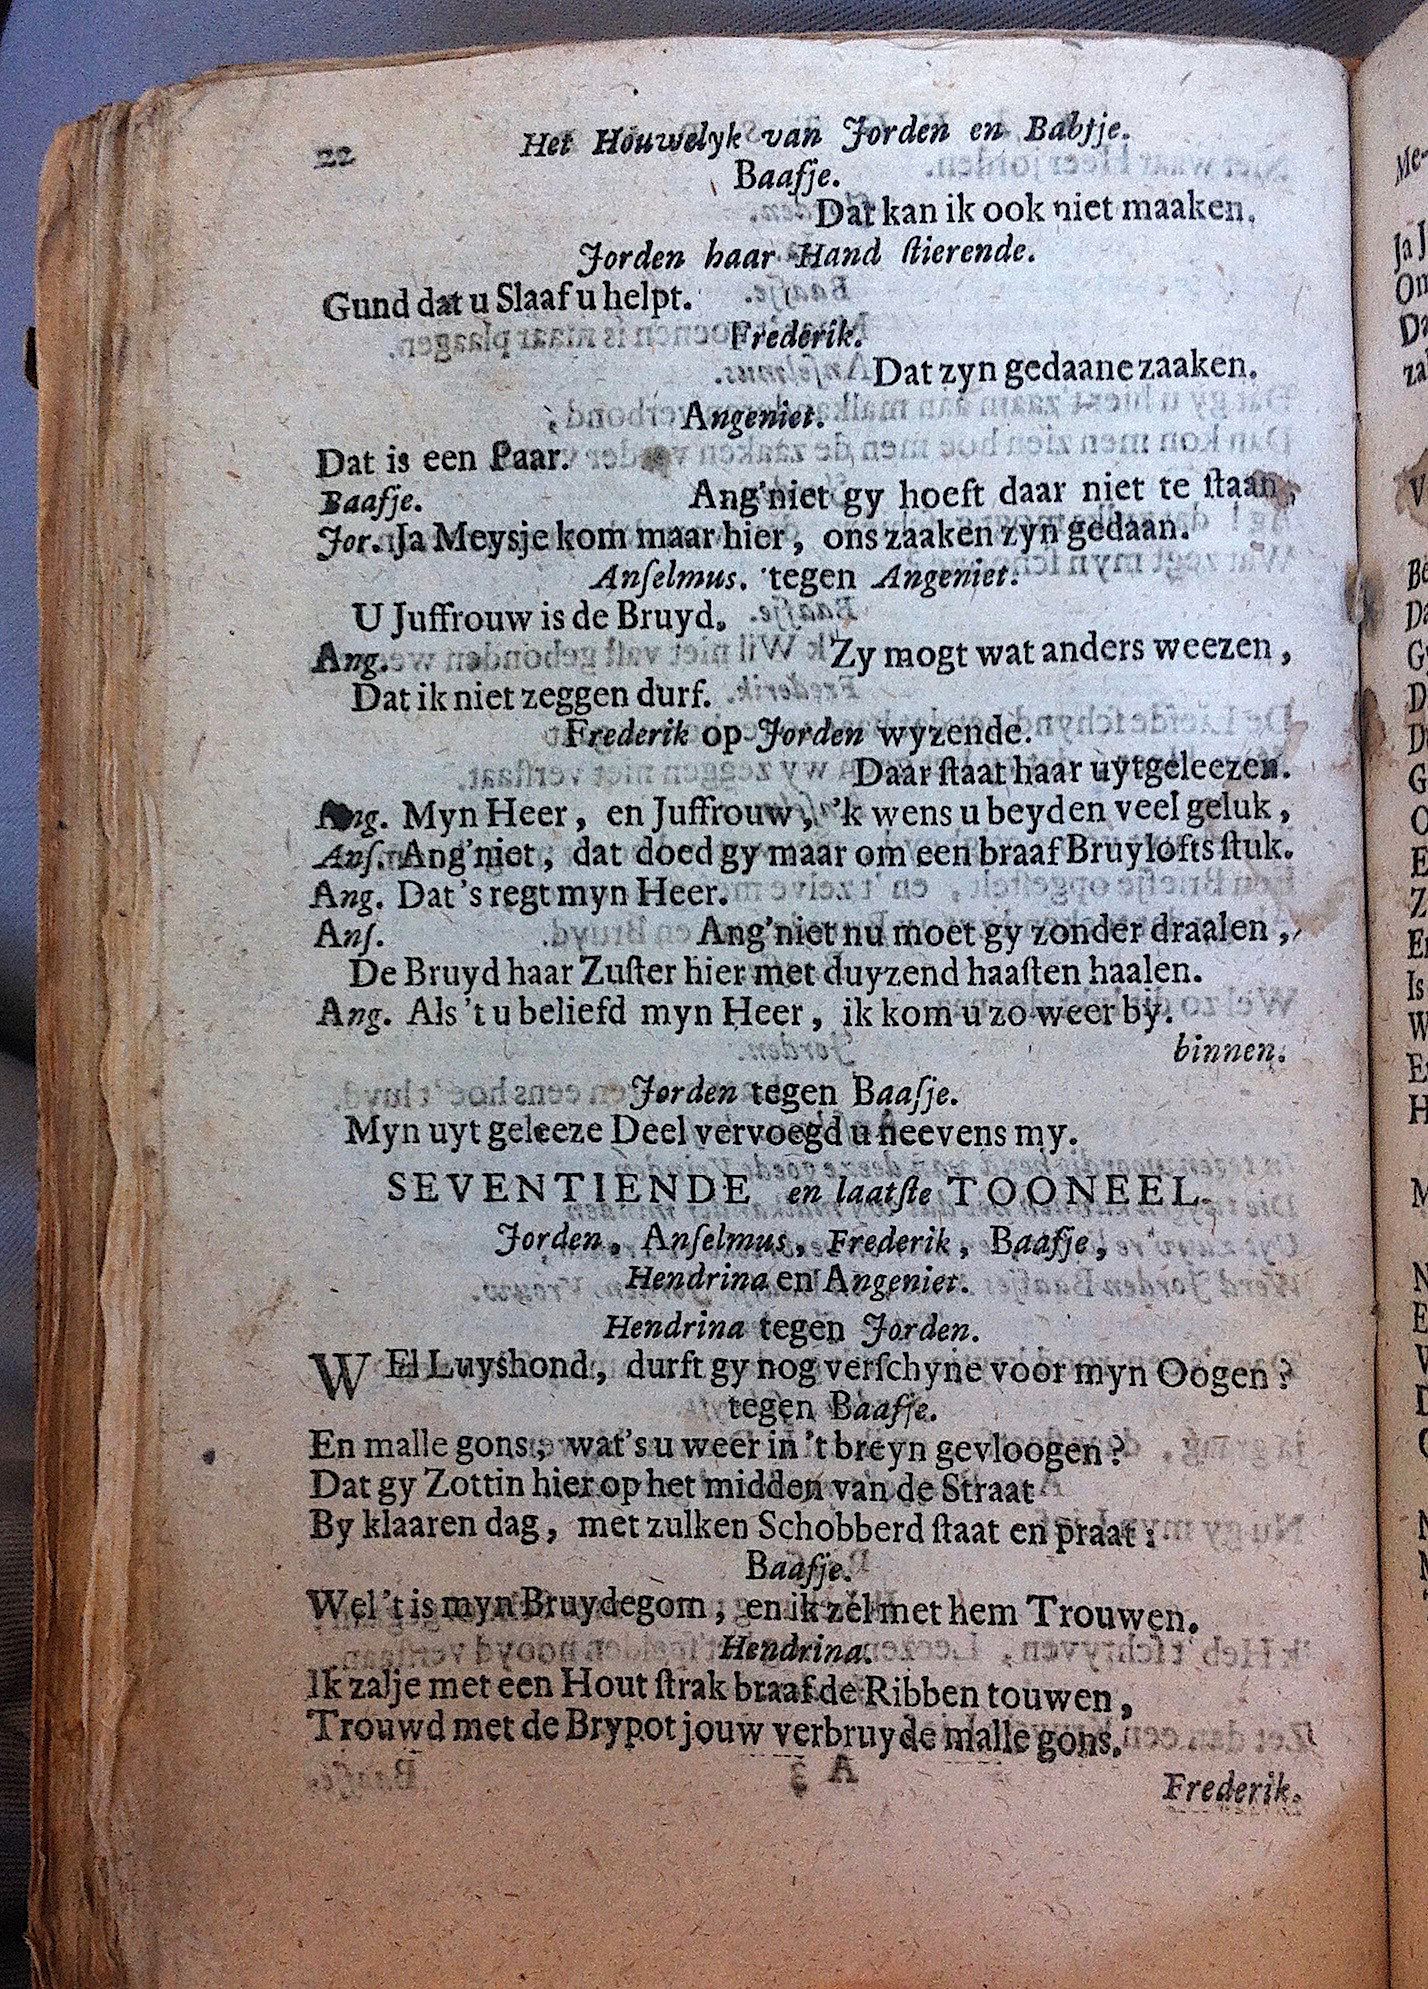 22 Het Houwelyk van Jorden en Babſje.
Baafje.
Dat kan ik ook niet maaken.
Jorden haar Hand ſtierende.
Gund dat u Slaaf u helpt.
Frederik.
Dat zyn gedaane zaaken.
Angeniet.
Dat is een Paar.
Baafje. Ang'niet gy hoeft daar niet te ſtaan,
Jor. Ja Meysje kom maar hier, ons zaaken zyn gedaan.
Anſelmus. tegen Angeniet.
U Juffrouw is de Bruyd.
Ang. Zy mogt wat anders weezen,
Dat ik niet zeggen durf.
Frederik op Jorden wyzende.
Daar ſtaat haar uytgeleezen.
Ang. Myn Heer, en Juffrouw, 'k wens u beyden veel geluk,
Anſ. Ang'niet, dat doed gy maar om een braaf Bruylofts ſtuk.
Ang. Dat's regt myn Heer.
Anſ. Ang'niet nu moet gy zonder draalen,
De Bruyd haar Zuſter hier met duyzend haaſten haalen.
Ang. Als 't u beliefd myn Heer, ik kom u zo weer by.
binnen.
Jorden tegen Baaſje.
Myn uyt geleeze Deel vervoegd u neevens my.
SEVENTIENDE en laatſte TOONEEL.
Jorden, Anſelmus, Frederik, Baafje,
Hendrina en Angeniet.
Hendrina tegen Jorden.
WEl Luyshond, durft gy nog verſchyne voor myn Oogen?
tegen Baafje.
En malle gons, wat's u weer in 't breyn gevloogen?
Dat gy Zottin hier op het midden van de Straat
By klaaren dag, met zulken Schobberd ſtaat en praat:
Baafje.
Wel 't is myn Bruydegom, en ik zel met hem Trouwen.
Hendrina.
Ik zal je met een Hout ſtrak braaf de Ribben touwen,
Trouwd met de Brypot jouw verbruyde malle gons.
Frederik.